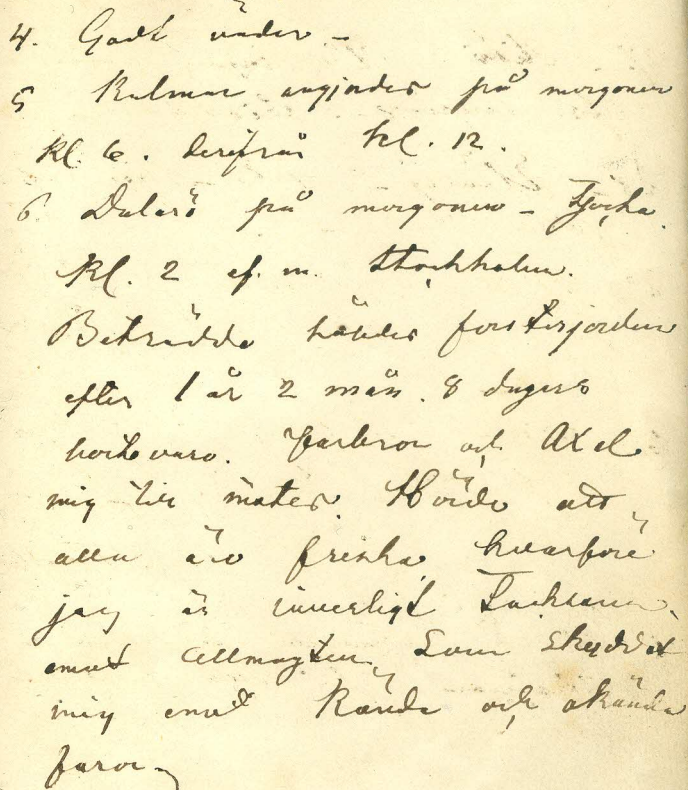 4. Godt väder –
5 Kalmar angjordes på morgonen
kl. 6. derifrån kl. 12.
6 Dalarö på morgonen – Tjocka.
Kl. 2 ef. m. Stockholm.
Beträdde fosterjorden
efter 1 år 2 mån. 8 dagars
bortovaro. Farbror och Axel
mig till mötes. Hörde att
alla äro friska, hvarföre
jag är innerligt tacksam
emot allmagten, som skyddat
mig emot kända och okända
faror.